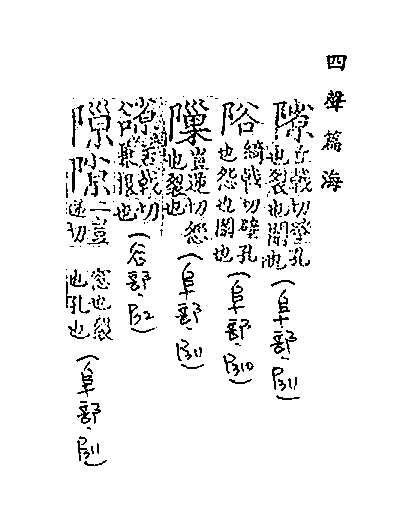 四聲篇海
隙丘戟切壁孔也裂也閑也(阜部.P311)
綺戟切壁孔也怨也閑也(阜部.P310)
豈逆切怨也裂也(阜部.P311)
戟切也(谷部.P32)
二豈逆切也裂也孔也(阜部.P311)